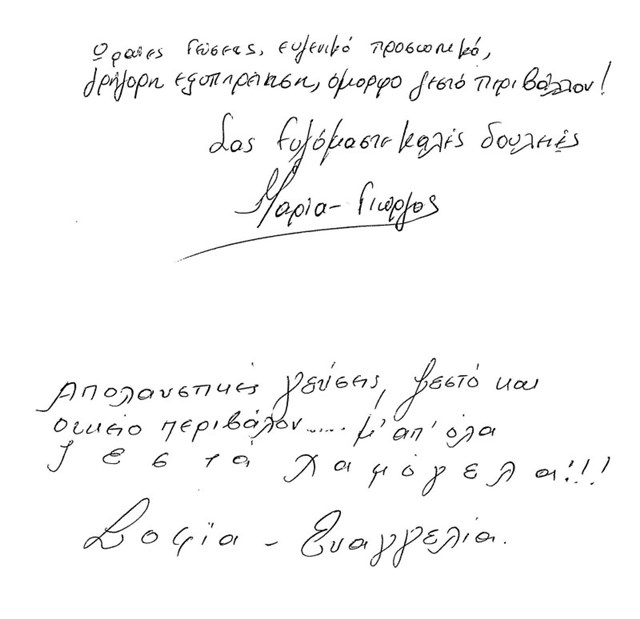 Ωραίες γεύσεις, ευγενικό προσωπικό,
γρήγορη εξυπηρέτηση, όμορφο ζεστό περιβάλλον!
Σας Ευχόμαστε καλές δουλειές
Μαρία - Γιώργος
Απολαυστικές γεύσης, ζεστό και
οικείο περιβάλον...... μ' απ' όλα
ζεστά χαμόγελα!!!
Σοφία - Ευαγγελία.